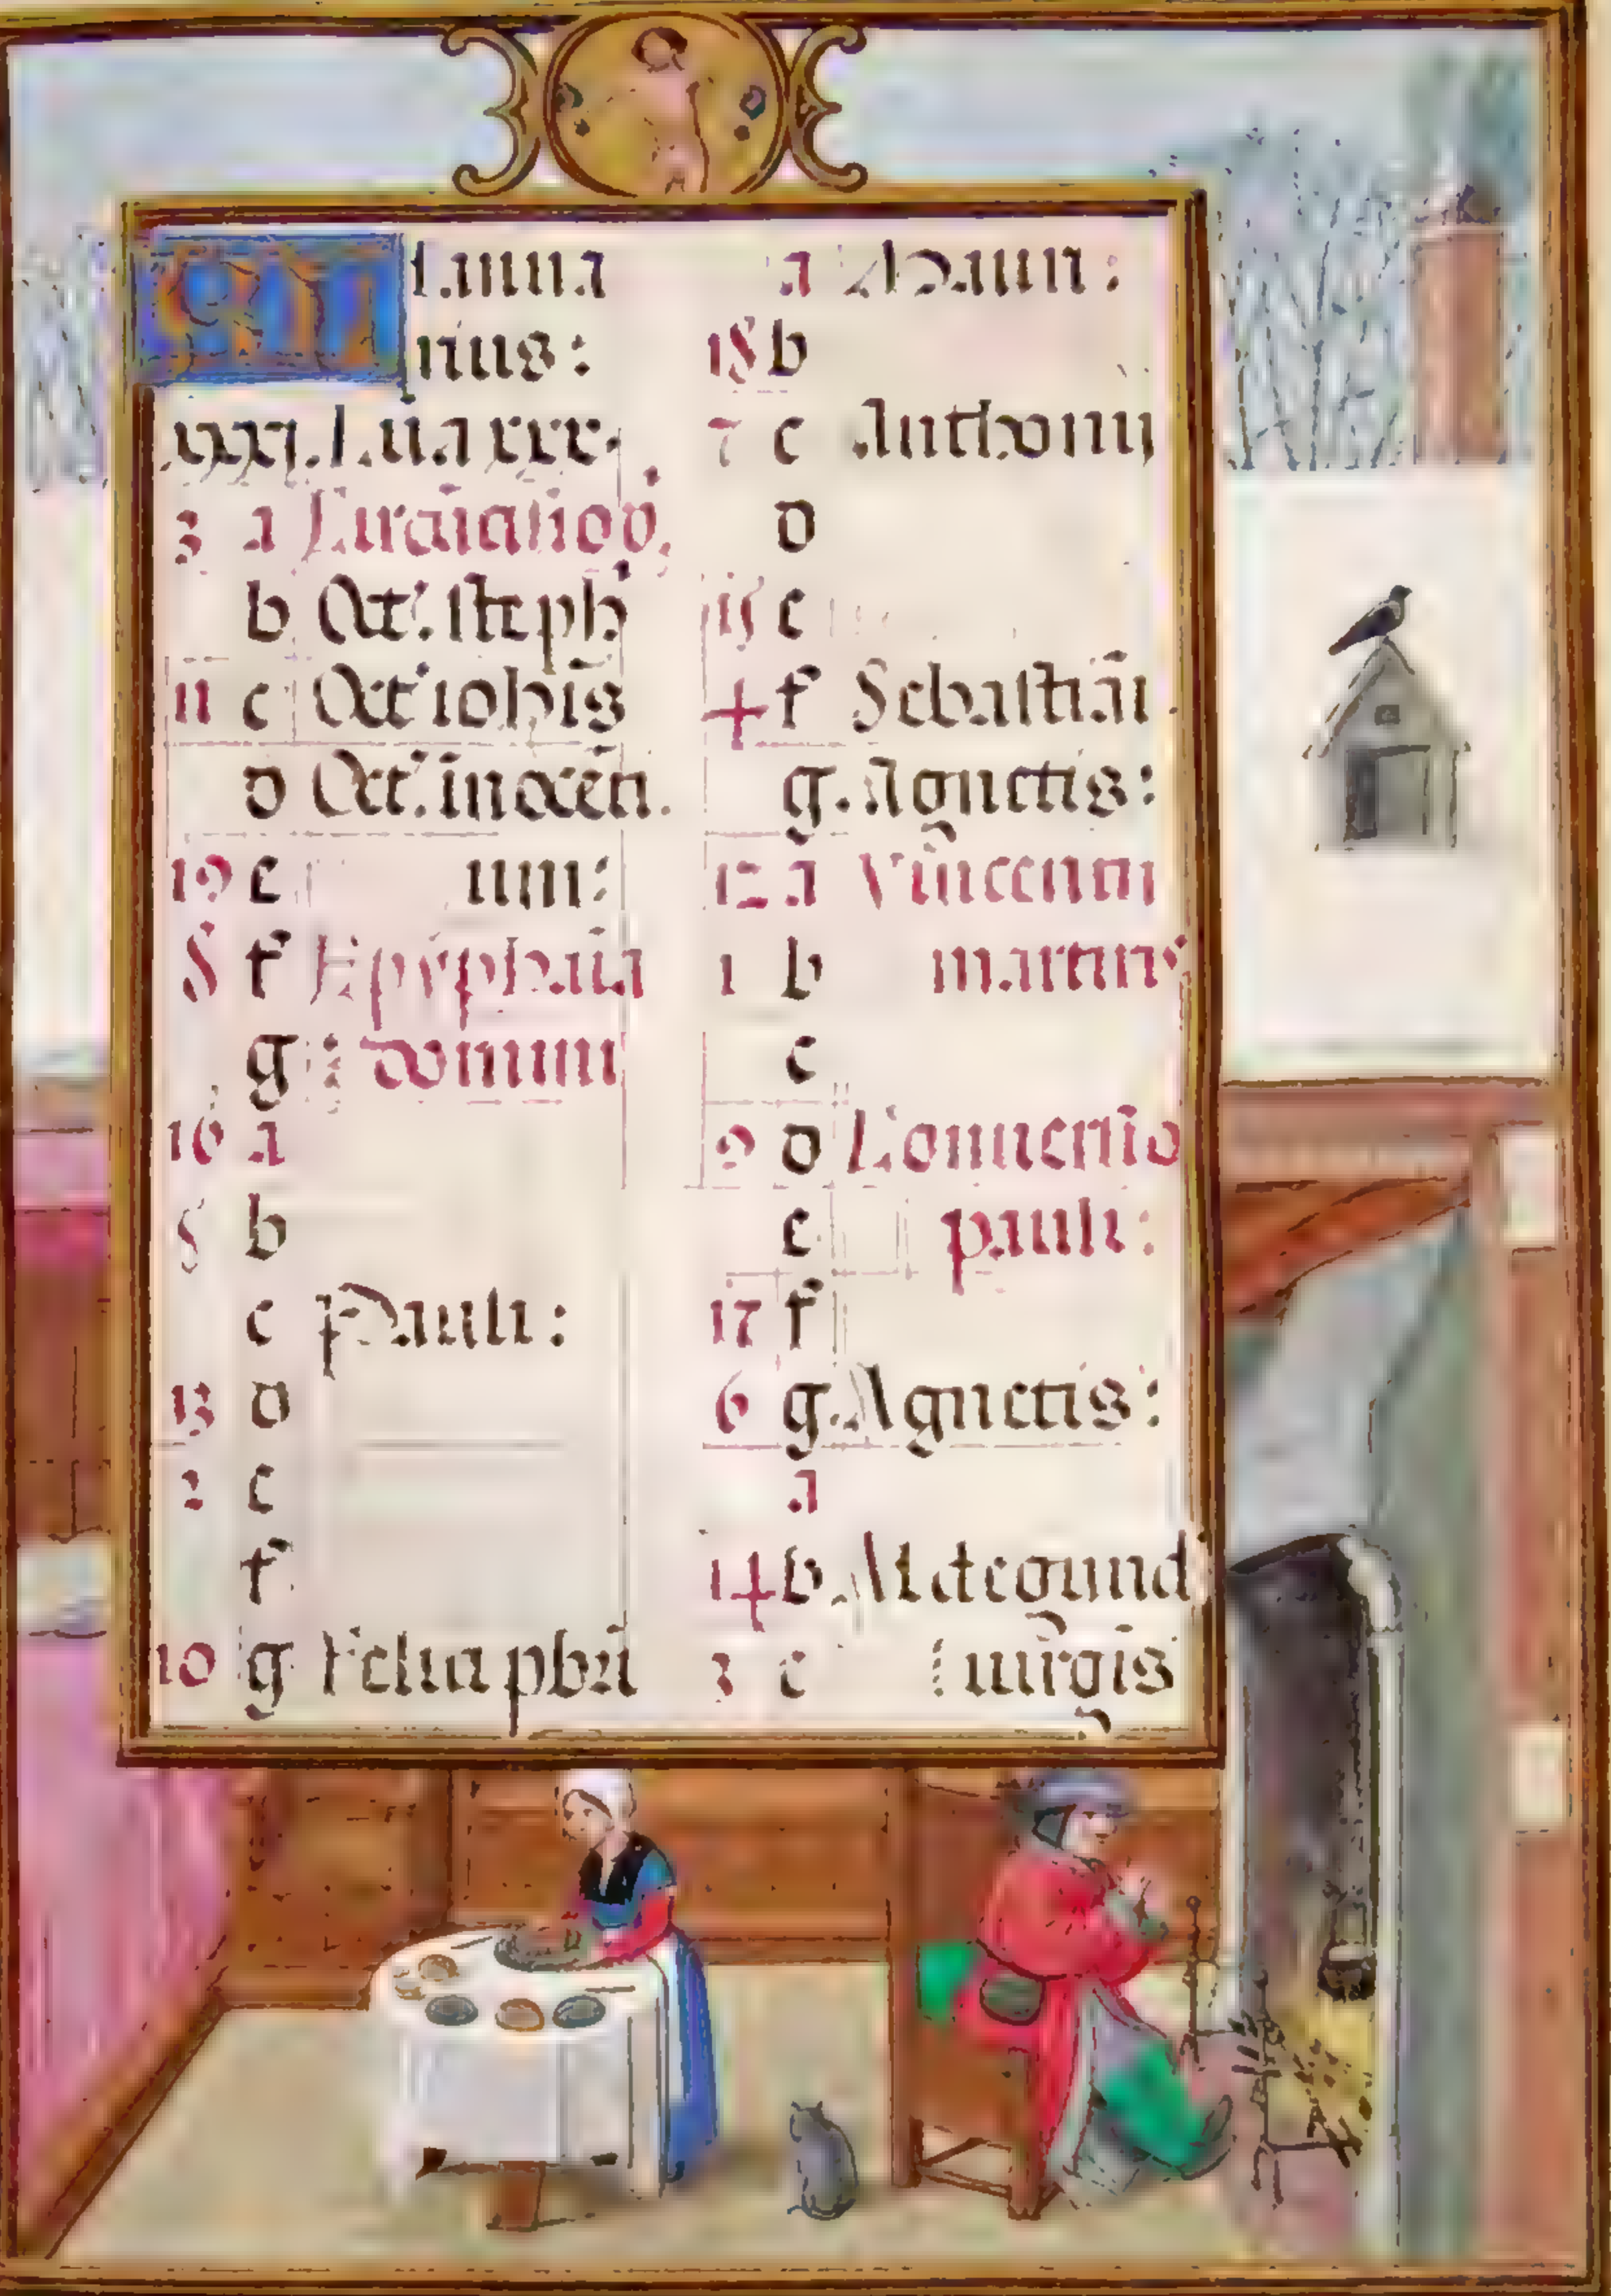 KL Janua
rius:
xxxj. Luna xxx.
3 a Circūcisio dñi
b Oct'. steph'
11 c Oct' iohīs
d Oct'. inocēn.
19 e tium:
8 f Epÿphaīa
g domini
16 a
5 b
c Pauli:
13 d
2 e
f
10 g Felicis pbrī
a Abbatis:
18 b
7 c Anthonij
d
15 e
4 f Sebastiāi.
g Agnetis:
12 a Vincentij
1 b martiris
c
9 d Conuersio
e pauli:
17 f
6 g Agnetis:
a
14 b Aldegund'
3 c uirgīs